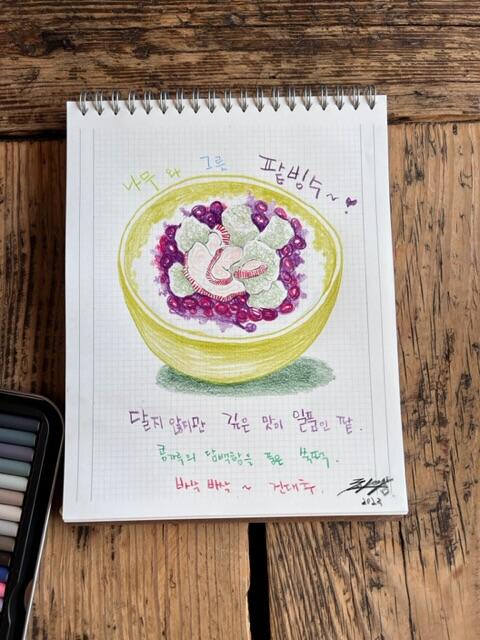 나무와 그릇 팥빙수~
달지 않지만 깊은 맛이 일품인 팥.
콩가루의 담백함을 품은 쑥떡.
바삭 바삭 ~ 건대추.
2023